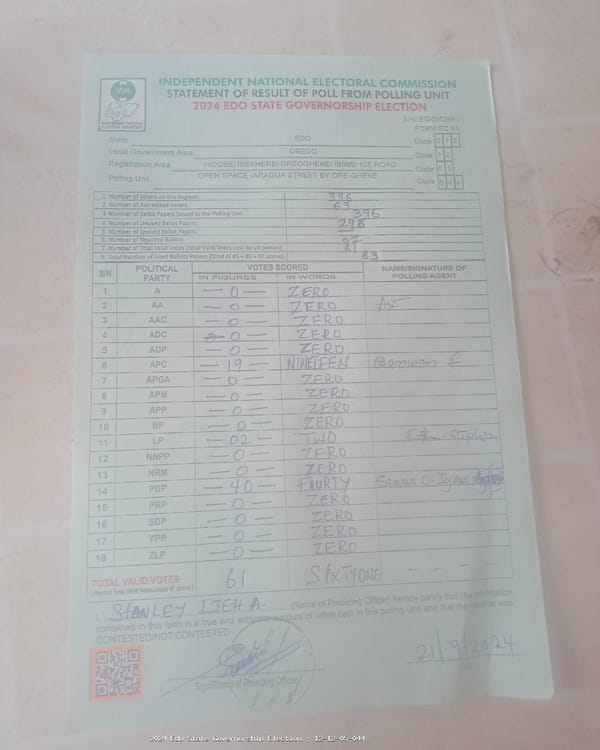 INDEPENDENT NATIONAL ELECTORAL COMMISSION
STATEMENT OF RESULT OF POLL FROM POLLING UNIT
2024 EDO STATE GOVERNORSHIP ELECTION
FORM EC 8A
State EDO Code 012
Local Government Area OREDO Code 12
Registration Area IHOGBE/ ISEKHERE/ OREOGHENE/ IBIWE/ ICE ROAD Code 05
Polling Unit OPEN SPACE -ARAGUA STREET BY ORE-GHENE Code 044
1. Number of Voters on the Register 396
2. Number of Accredited Voters 63
3. Number of Ballot Papers Issued to the Polling Unit 396
4. Number of Unused Ballot Papers
5. Number of Spoiled Ballot Papers
6. Number of Rejected Ballots 02
7. Number of Total Valid Votes (Total Valid Votes cast for all parties) 61
8. Total Number of Used Ballots Papers (Total of #5 + #6 + #7 above) 63
S/N POLITICAL PARTY VOTES SCORED IN FIGURES IN WORDS NAME/SIGNATURE OF POLLING AGENT
1 A — 0 — ZERO
2 AA — 0 — ZERO
3 AAC — 0 — ZERO
4 ADC 0 — ZERO
5 ADP — 0 — ZERO
6 APC — 19 — NINETEEN
7 APGA — 0 — ZERO
8 APM — 0 — ZERO
9 APP — 0 — ZERO
10 BP — 0 — ZERO
11 LP — 02 — TWO
12 NNPP — 0 — ZERO
13 NRM — 0 — ZERO
14 PDP — 40 — FOURTY
15 PRP — 0 — ZERO
16 SDP — 0 — ZERO
17 YPP — 0 — ZERO
18 ZLP — 0 — ZERO
TOTAL VALID VOTES 61 SIXTYONE - - - -
I, STANLEY IJEH A. (Name of Presiding Officer) hereby certify that the information
contained in this form is a true and accurate account of votes cast in this polling unit and that the election was
CONTESTED/NOT CONTESTED
21/9/2024
Sign/Stamp of Presiding Officer
2024 Edo State Governorship Election : 12-12-05-044